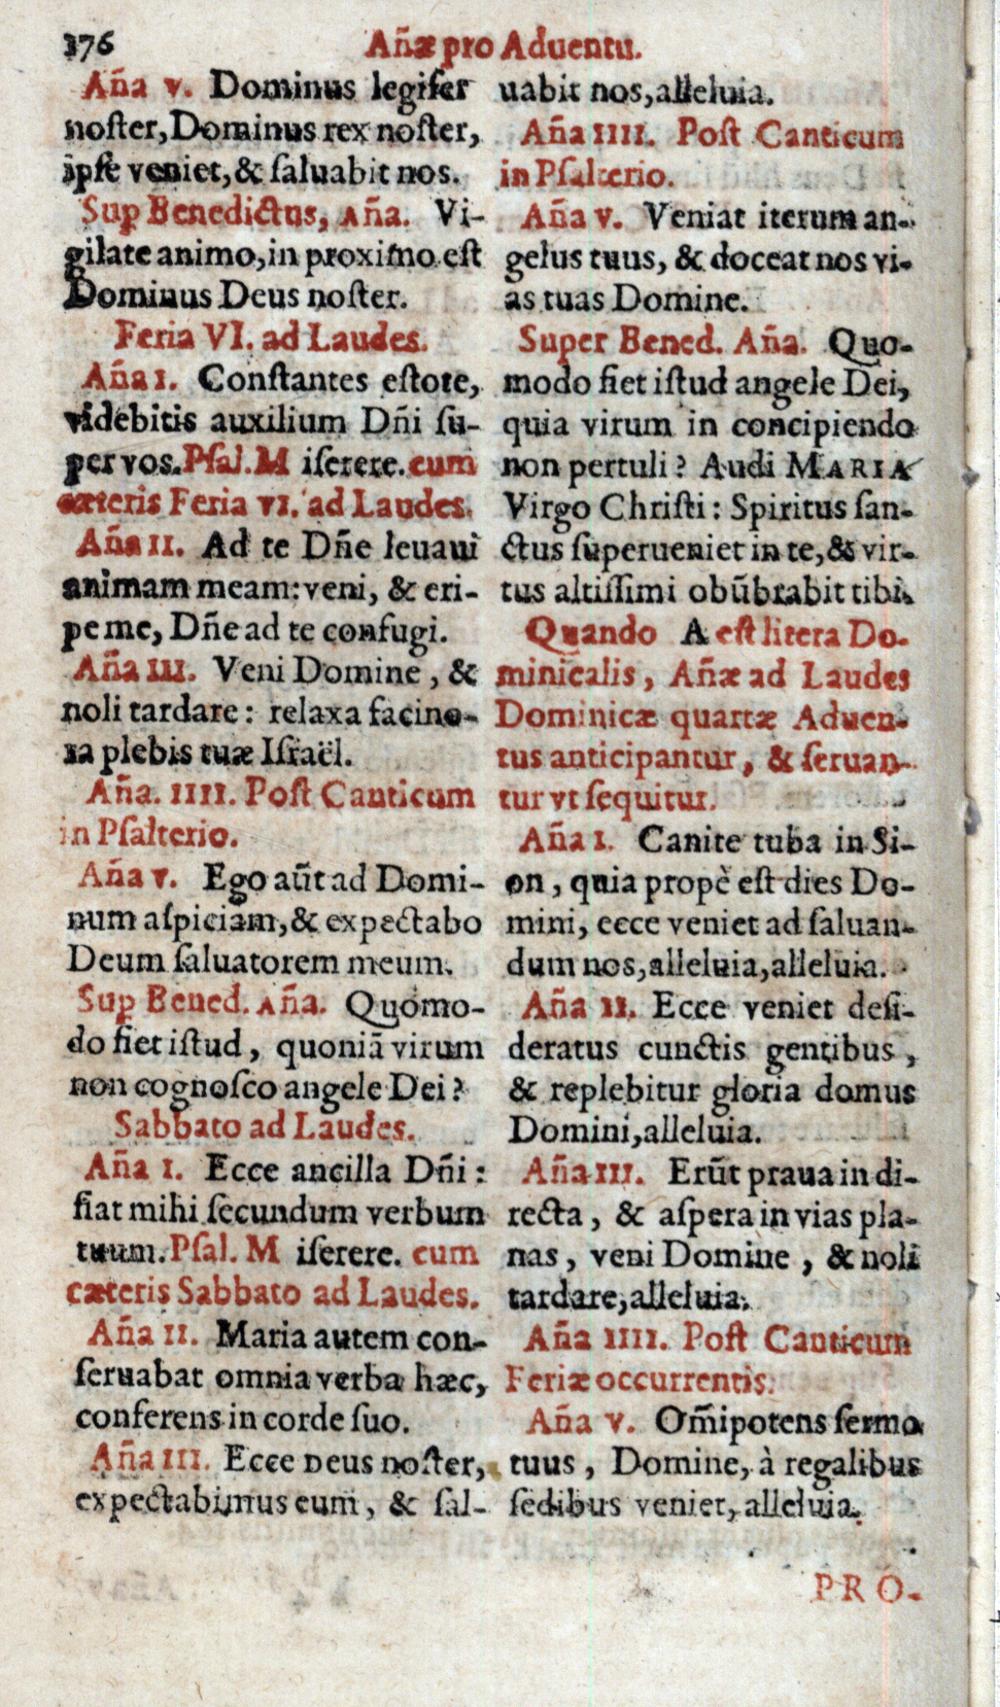 376 Añæ pro Aduentu.
Aña v. Dominus legifer
noſter, Dominus rex noſter,
ipſe veniet, & ſaluabit nos.
Suꝑ Benedictus, Aña. Vi-
gilate animo, in proximo eſt
Dominus Deus noſter.
Feria VI. ad Laudes.
Aña I. Conſtantes eſtote,
videbitis auxilium Dñi ſu-
per vos. Pſal. M iſerere. cum
cæteris Feria VI. ad Laudes.
Aña II. Ad te Dñe leuaui
animam meam: veni, & eri-
pe me, Dñe ad te confugi.
Aña III. Veni Domine, &
noli tardare: relaxa facino-
ra plebis tuæ Iſraël.
Aña. IIII. Poſt Canticum
in Pſalterio.
Aña v. Ego aũt ad Domi-
num aſpiciam, & expectabo
Deum ſaluatorem meum.
Suꝑ Bened. Aña. Quomo-
do fiet iſtud, quoniã virum
non cognoſco angele Dei?
Sabbato ad Laudes.
Aña I. Ecce ancilla Dñi:
fiat mihi ſecundum verbum
tuum. Pſal. M iſerere. cum
cæteris Sabbato ad Laudes.
Aña II. Maria autem con-
ſeruabat omnia verba hæc,
conferens in corde ſuo.
Aña III. Ecce Deus noſter,
expectabimus eum, & ſal-
uabit nos, alleluia.
Aña IIII. Poſt Canticum
in Pſalterio.
Aña v. Veniat iterum an-
gelus tuus, & doceat nos vi-
as tuas Domine.
Super Bened. Aña. Quo-
modo fiet iſtud angele Dei,
quia virum in concipiendo
non pertuli? Audi MARIA
Virgo Chriſti: Spiritus ſan-
ctus ſuperueniet in te, & vir-
tus altiſſimi obũbrabit tibi.
Quando A eſt litera Do-
minicalis, Añæ ad Laudes
Dominicæ quartæ Aduen-
tus anticipantur, & ſeruan-
tur vt ſequitur.
Aña I. Canite tuba in Si-
on, quia propè eſt dies Do-
mini, ecce veniet ad ſaluan-
dum nos, alleluia, alleluia.
Aña II. Ecce veniet deſi-
deratus cunctis gentibus,
& replebitur gloria domus
Domini, alleluia.
Aña III. Erũt praua in di-
recta, & aſpera in vias pla-
nas, veni Domine, & noli
tardare, alleluia.
Aña IIII. Poſt Canticum
Feriæ occurrentis.
Aña v. Om̃ipotens ſermo
tuus, Domine, à regalibus
ſedibus veniet, alleluia.
PRO-